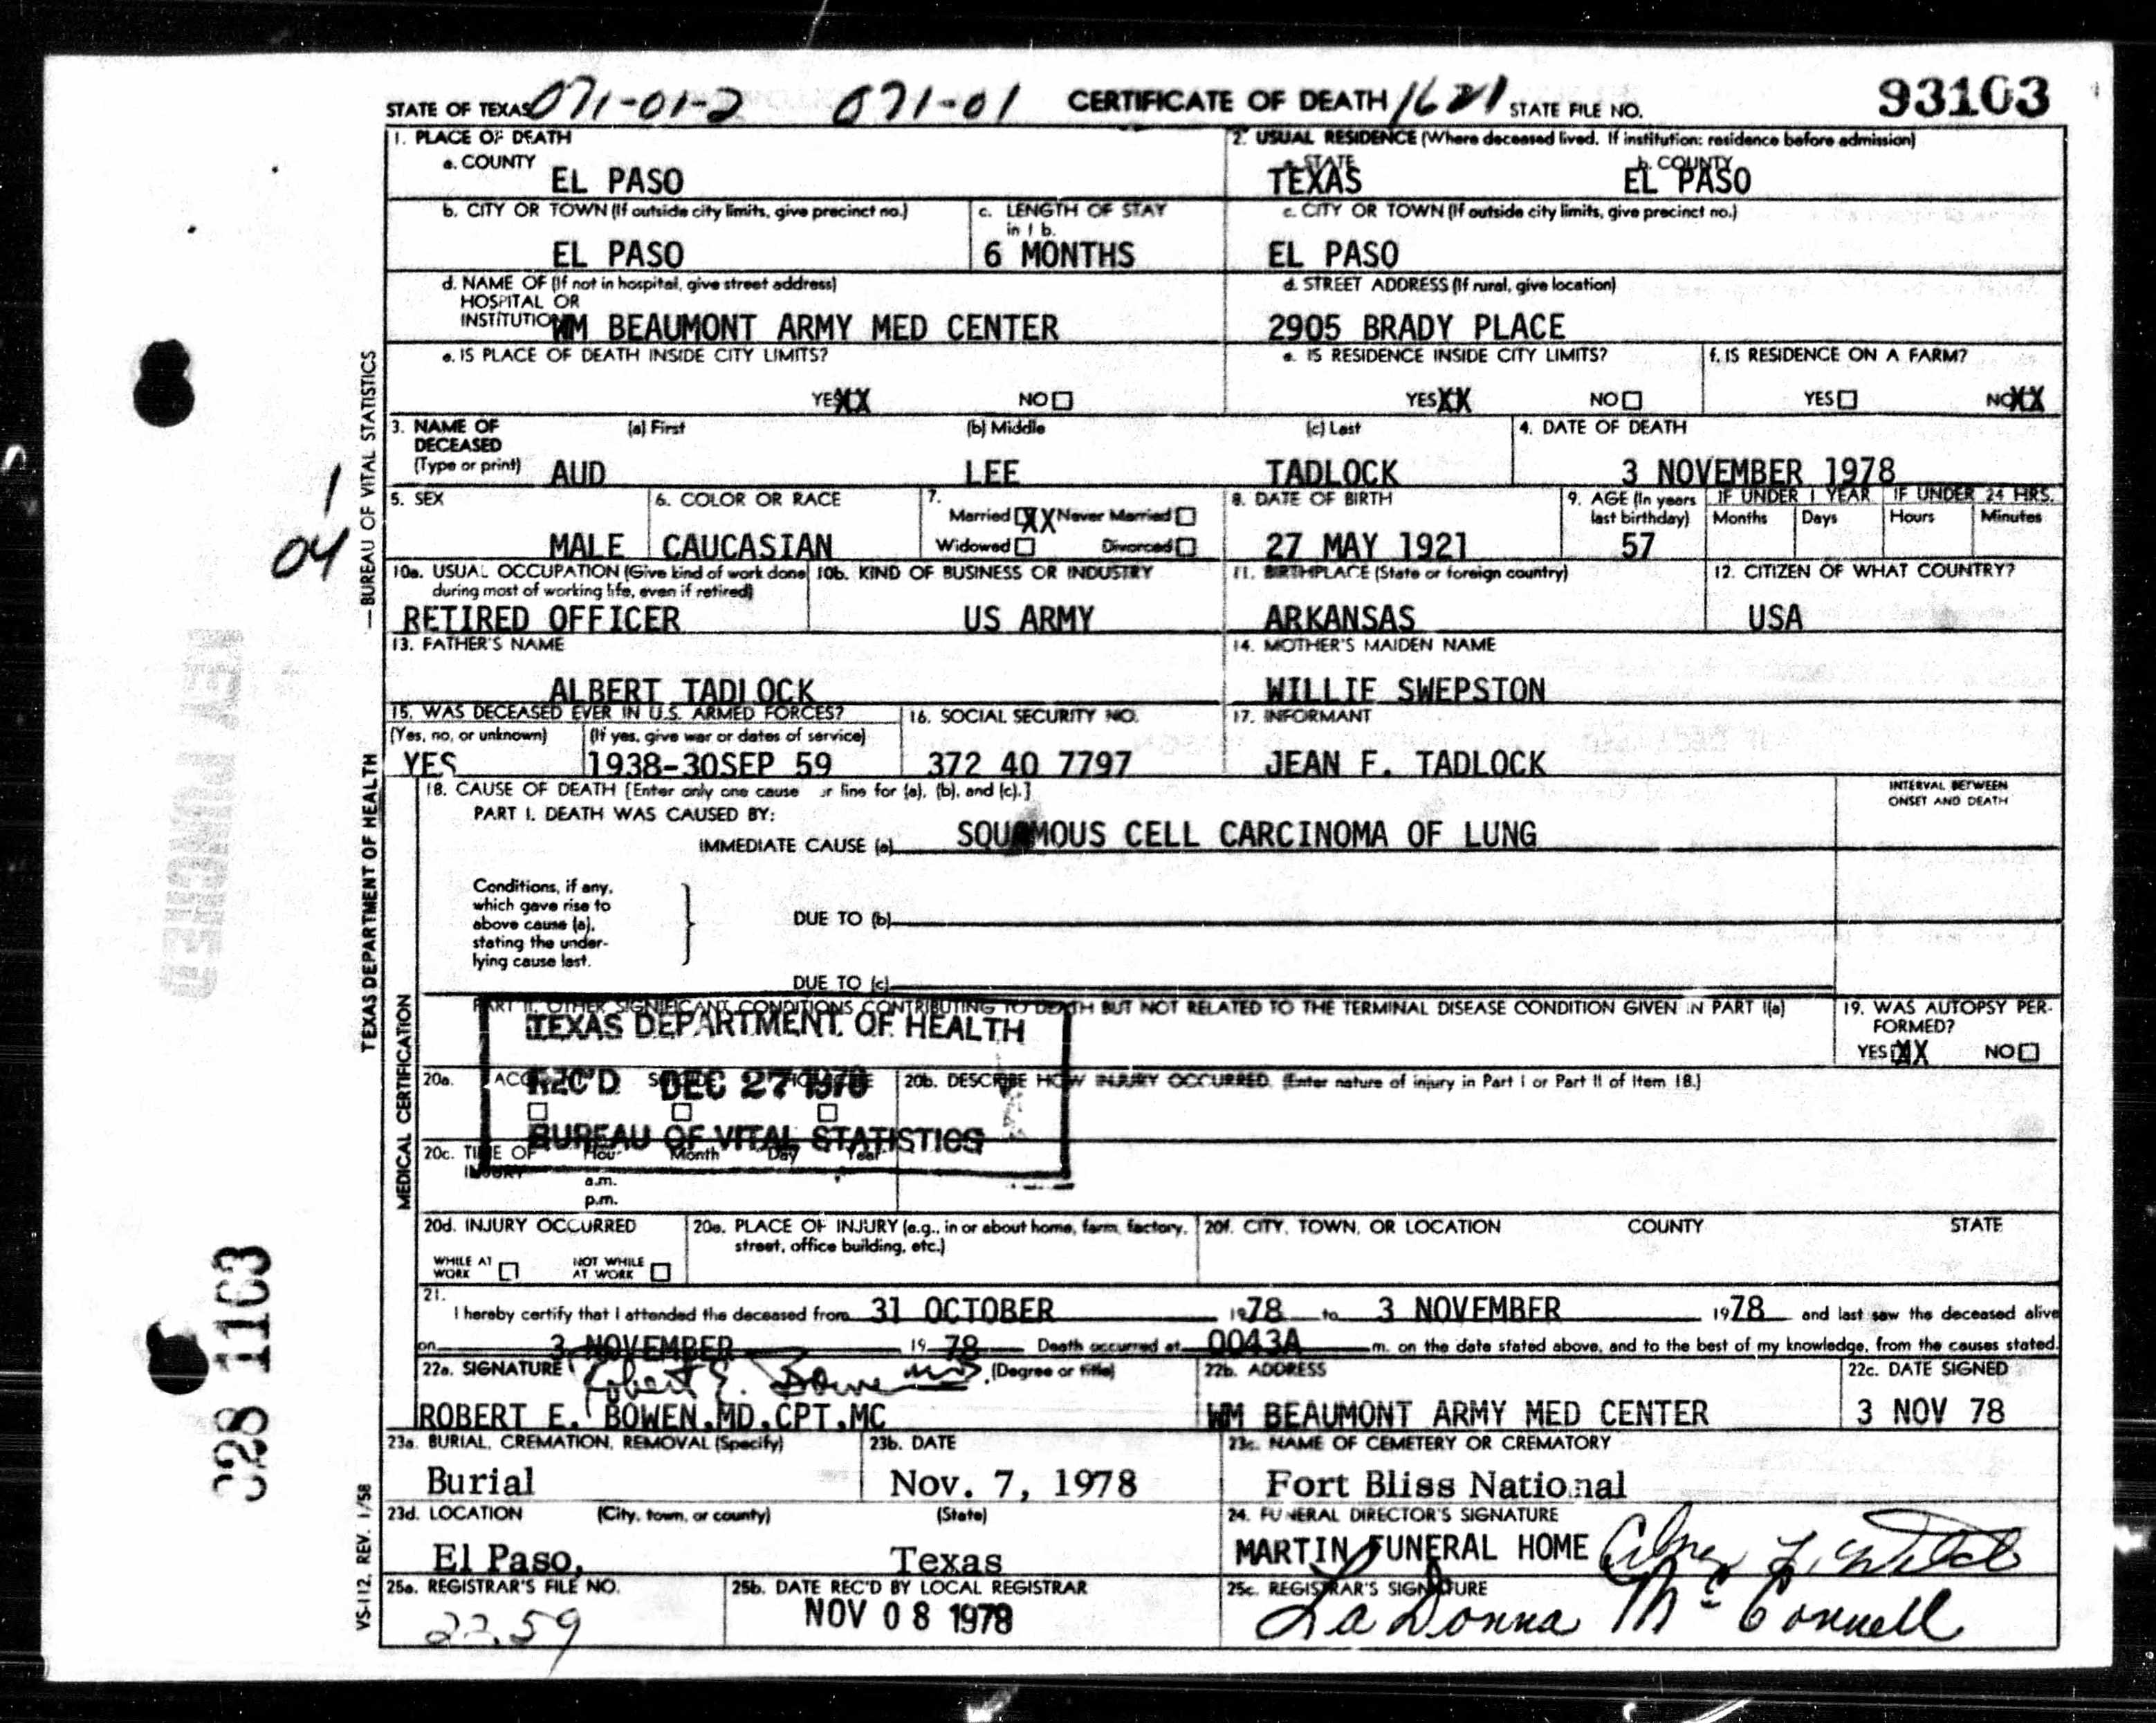 STATE OF TEXAS 071-01-2 071-01 CERTIFICATE OF DEATH 1621 STATE FILE NO. 93103
1. PLACE OF DEATH
a. COUNTY
EL PASO
2. USUAL RESIDENCE (Where deceased lived. If institution: residence before admission)
a. STATE b. COUNTY
TEXAS EL PASO
b. CITY OR TOWN (If outside city limits, give precinct no.)
EL PASO
c. LENGTH OF STAY
in 1 b.
6 MONTHS
c. CITY OR TOWN (If outside city limits, give precinct no.)
EL PASO
d. NAME OF (If not in hospital, give street address)
HOSPITAL OR
INSTITUTION WM BEAUMONT ARMY MED CENTER
d. STREET ADDRESS (If rural, give location)
2905 BRADY PLACE
e. IS PLACE OF DEATH INSIDE CITY LIMITS?
YES XX NO
e. IS RESIDENCE INSIDE CITY LIMITS?
YES XX NO
f. IS RESIDENCE ON A FARM?
YES NO XX
3. NAME OF
DECEASED
(Type or print)
(a) First (b) Middle (c) Last
AUD LEE TADLOCK
4. DATE OF DEATH
3 NOVEMBER 1978
5. SEX
MALE
6. COLOR OR RACE
CAUCASIAN
7.
Married XX Never Married
Widowed Divorced
8. DATE OF BIRTH
27 MAY 1921
9. AGE (In years
last birthday)
57
IF UNDER 1 YEAR
Months Days
IF UNDER 24 HRS.
Hours Minutes
10a. USUAL OCCUPATION (Give kind of work done
during most of working life, even if retired)
RETIRED OFFICER
10b. KIND OF BUSINESS OR INDUSTRY
US ARMY
11. BIRTHPLACE (State or foreign country)
ARKANSAS
12. CITIZEN OF WHAT COUNTRY?
USA
13. FATHER'S NAME
ALBERT TADLOCK
14. MOTHER'S MAIDEN NAME
WILLIE SWEPSTON
15. WAS DECEASED EVER IN U.S. ARMED FORCES?
(Yes, no, or unknown) (If yes, give war or dates of service)
YES 1938-30SEP 59
16. SOCIAL SECURITY NO.
372 40 7797
17. INFORMANT
JEAN F. TADLOCK
18. CAUSE OF DEATH [Enter only one cause line for (a), (b), and (c).]
PART I. DEATH WAS CAUSED BY:
IMMEDIATE CAUSE (a) SQUAMOUS CELL CARCINOMA OF LUNG
INTERVAL BETWEEN
ONSET AND DEATH
Conditions, if any,
which gave rise to
above cause (a),
stating the under-
lying cause last.
DUE TO (b)
DUE TO (c)
PART II. OTHER SIGNIFICANT CONDITIONS CONTRIBUTING TO DEATH BUT NOT RELATED TO THE TERMINAL DISEASE CONDITION GIVEN IN PART I(a)
19. WAS AUTOPSY PER-
FORMED?
YES XX NO
TEXAS DEPARTMENT OF HEALTH
REC'D DEC 27 1978
BUREAU OF VITAL STATISTICS
20a.
20b. DESCRIBE HOW INJURY OCCURRED. (Enter nature of injury in Part I or Part II of Item 18.)
20c. TIME OF
INJURY
Hour Month Day Year
a.m.
p.m.
20d. INJURY OCCURRED
WHILE AT
WORK
NOT WHILE
AT WORK
20e. PLACE OF INJURY (e.g., in or about home, farm, factory,
street, office building, etc.)
20f. CITY, TOWN, OR LOCATION COUNTY STATE
21.
I hereby certify that I attended the deceased from 31 OCTOBER 1978 to 3 NOVEMBER 1978 and last saw the deceased alive
on 3 NOVEMBER 19 78 Death occurred at 0043A m. on the date stated above, and to the best of my knowledge, from the causes stated.
22a. SIGNATURE Robert E. Bowen MD (Degree or title)
ROBERT E. BOWEN,MD,CPT,MC
22b. ADDRESS
WM BEAUMONT ARMY MED CENTER
22c. DATE SIGNED
3 NOV 78
23a. BURIAL, CREMATION, REMOVAL (Specify)
Burial
23b. DATE
Nov. 7, 1978
23c. NAME OF CEMETERY OR CREMATORY
Fort Bliss National
23d. LOCATION (City, town, or county) (State)
El Paso, Texas
24. FUNERAL DIRECTOR'S SIGNATURE
MARTIN FUNERAL HOME
25a. REGISTRAR'S FILE NO.
2259
25b. DATE REC'D BY LOCAL REGISTRAR
NOV 08 1978
25c. REGISTRAR'S SIGNATURE
La Donna McConnell
TEXAS DEPARTMENT OF HEALTH — BUREAU OF VITAL STATISTICS
MEDICAL CERTIFICATION
VS-112, REV. 1/58
1
04
KEY PUNCHED
028 1103